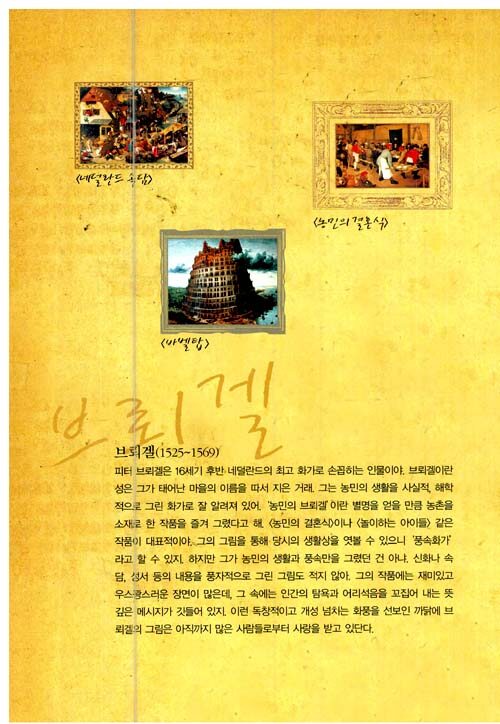 <네덜란드 속담>
<농민의 결혼식>
<바벨탑>
브뤼겔
브뤼겔(1525~1569)
피터 브뤼겔은 16세기 후반 네덜란드의 최고 화가로 손꼽히는 인물이야. 브뤼겔이란
성은 그가 태어난 마을의 이름을 따서 지은 거래. 그는 농민의 생활을 사실적, 해학
적으로 그린 화가로 잘 알려져 있어. '농민의 브뤼겔'이란 별명을 얻을 만큼 농촌을
소재로 한 작품을 즐겨 그렸다고 해. <농민의 결혼식>이나 <놀이하는 아이들> 같은
작품이 대표적이야. 그의 그림을 통해 당시의 생활상을 엿볼 수 있으니 '풍속화가'
라고 할 수 있지. 하지만 그가 농민의 생활과 풍속만을 그렸던 건 아냐. 신화나 속
담, 성서 등의 내용을 풍자적으로 그린 그림도 적지 않아. 그의 작품에는 재미있고
우스꽝스러운 장면이 많은데, 그 속에는 인간의 탐욕과 어리석음을 꼬집어 내는 뜻
깊은 메시지가 깃들어 있지. 이런 독창적이고 개성 넘치는 화풍을 선보인 까닭에 브
뤼겔의 그림은 아직까지 많은 사람들로부터 사랑을 받고 있단다.